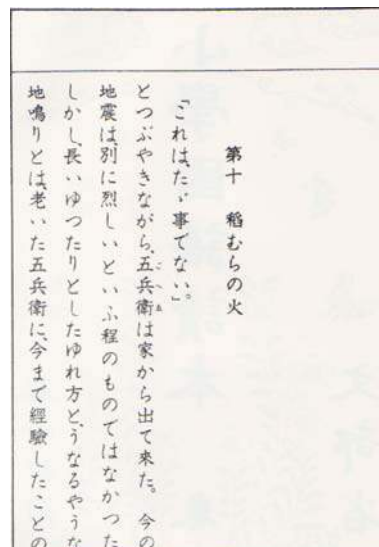 第十　稻むらの火
「これは、たゞ事でない。」
とつぶやきながら、五兵衛は家から出て來た。今の
地震は、別に烈しいといふ程のものではなかつた
しかし、長いゆつたりとしたゆれ方と、うなるやうな
地鳴りとは、老いた五兵衛に、今まで經驗したことの